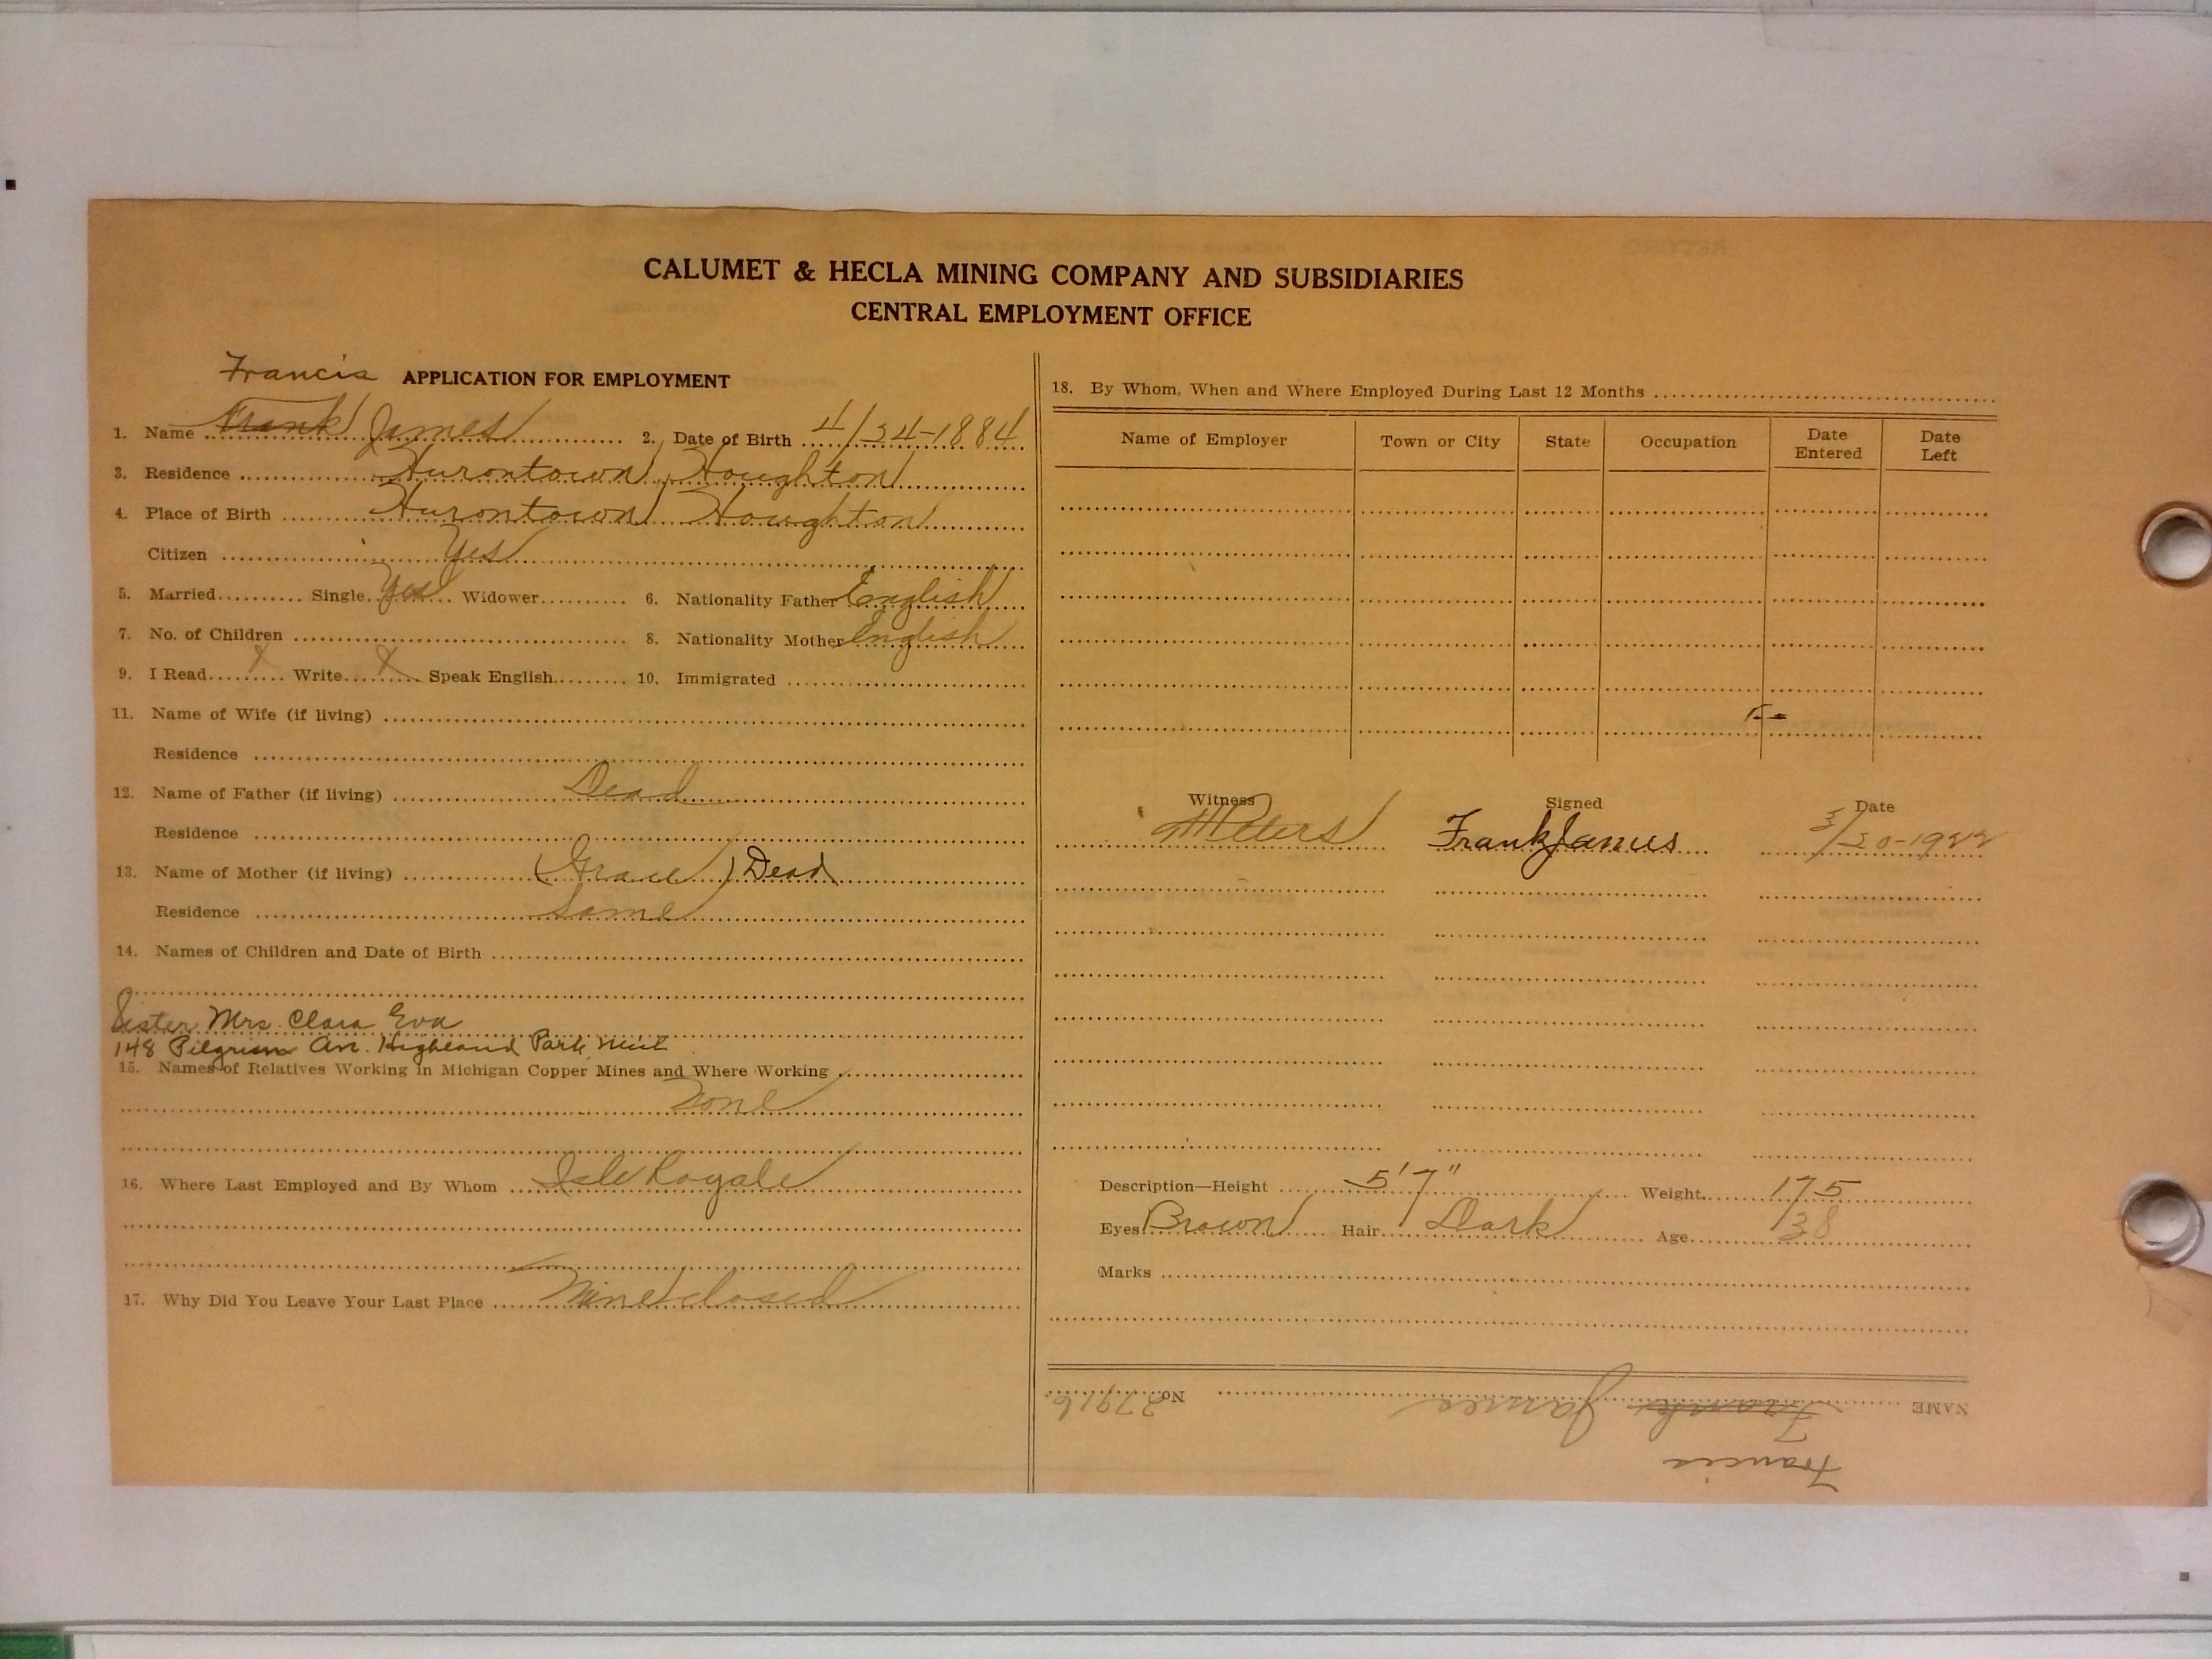 CALUMET & HECLA MINING COMPANY AND SUBSIDIARIES
CENTRAL EMPLOYMENT OFFICE
Francis APPLICATION FOR EMPLOYMENT
1. Name Frank James 2. Date of Birth 4/24-1884
3. Residence Hurontown, Houghton
4. Place of Birth Hurontown Houghton
Citizen Yes
5. Married Single Yes Widower 6. Nationality Father English
7. No. of Children 8. Nationality Mother English
9. I Read X Write X Speak English 10. Immigrated
11. Name of Wife (if living)
Residence
12. Name of Father (if living) Dead
Residence
13. Name of Mother (if living) (Grace) Dead
Residence Same
14. Names of Children and Date of Birth
Sister Mrs. Clara Eva
148 Pilgrim Av. Highland Park Mich
15. Names of Relatives Working in Michigan Copper Mines and Where Working
None
16. Where Last Employed and By Whom Isle Royale
17. Why Did You Leave Your Last Place Mine closed
18. By Whom, When and Where Employed During Last 12 Months
Name of Employer Town or City State Occupation Date Entered Date Left
Witness Signed Date
Peters Frank James 3/20-1922
Description—Height 5' 7" Weight 175
Eyes Brown Hair Dark Age 38
Marks
NAME Frank James No. 27916
Francis